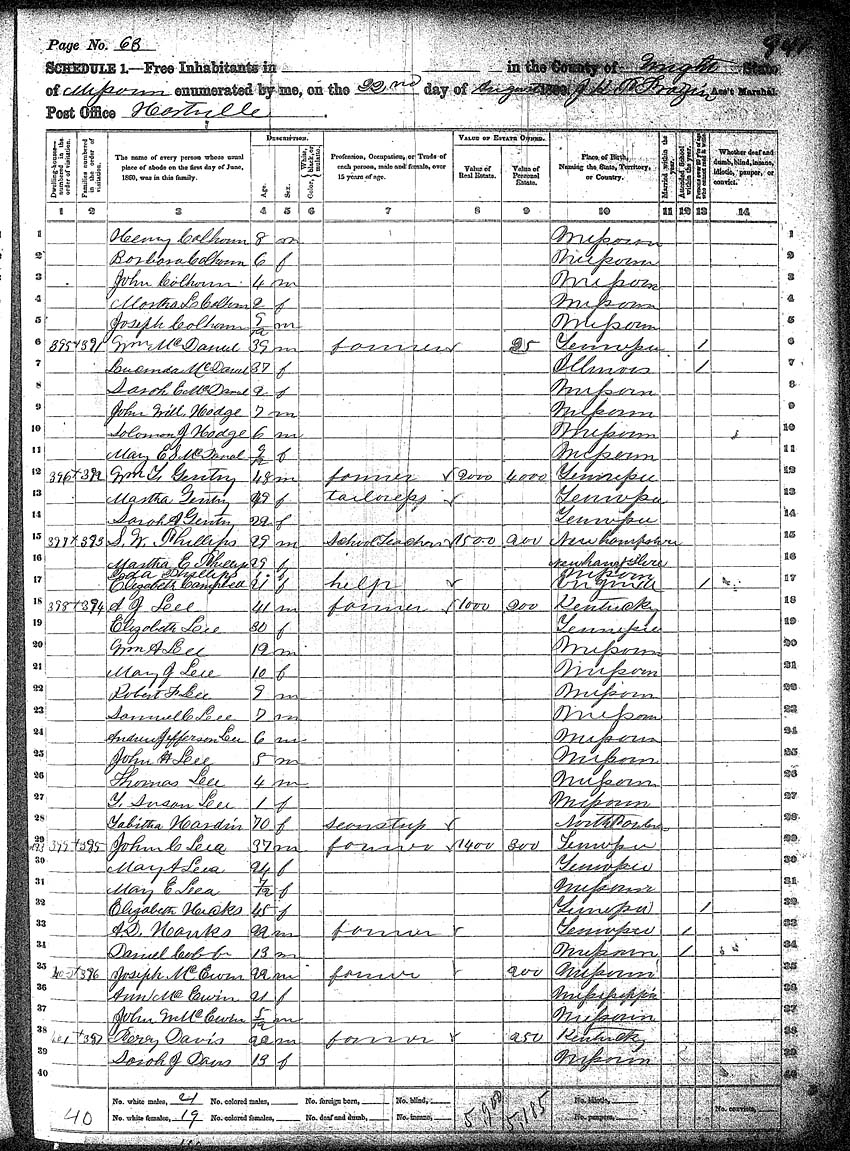 Page No. 63
SCHEDULE 1.—Free Inhabitants in in the County of Wright State
of Missouri enumerated by me, on the 22nd day of August 1860. Ass't Marshal.
Post Office Hartville
DESCRIPTION. VALUE OF ESTATE OWNED.
Dwelling-houses—numbered in the order of visitation. Families numbered in the order of visitation. The name of every person whose usual place of abode on the first day of June, 1860, was in this family. Age. Sex. Color, White, black, or mulatto. Profession, Occupation, or Trade of each person, male and female, over 15 years of age. Value of Real Estate. Value of Personal Estate. Place of Birth, Naming the State, Territory, or Country. Married within the year. Attended School within the year. Persons over 20 y'rs of age who cannot read & write. Whether deaf and dumb, blind, insane, idiotic, pauper, or convict.
1 2 3 4 5 6 7 8 9 10 11 12 13 14
1 Henry Calhoun 8 m Missouri 1
2 Barbara Calhoun 6 f Missouri 2
3 John Calhoun 4 m Missouri 3
4 Martha L Calhoun 2 f Missouri 4
5 Joseph Calhoun 9/12 m Missouri 5
6 395 391 Wm McDaniel 39 m farmer 25 Tennessee 1 6
7 Lucinda McDaniel 37 f Illinois 1 7
8 Sarah E McDaniel 9 f Missouri 8
9 John Will Hodge 7 m Missouri 9
10 Solomon J Hodge 6 m Missouri 10
11 Mary E S McDanal 9/12 f Missouri 11
12 396 392 Wm T Gentry 48 m farmer 2000 4000 Tennessee 12
13 Martha Gentry 49 f tailoress Tennessee 13
14 Sarah J Gentry 22 f Tennessee 14
15 397 393 S. W. Phillips 29 m School Teacher 1500 200 New hampshire 15
16 Martha E Phillips 29 f New hampshire 16
Ada Phillips Missouri
17 Elizabeth Campbell 21 f help Virginia 1 17
18 398 394 A J Lee 41 m farmer 1000 200 Kentucky 18
19 Elizabeth Lee 30 f Tennessee 19
20 Wm A Lee 12 m Missouri 20
21 Mary J Lee 10 f Missouri 21
22 Robert F Lee 9 m Missouri 22
23 Samuel C Lee 7 m Missouri 23
24 Andrew Jefferson Lee 6 m Missouri 24
25 John H Lee 5 m Missouri 25
26 Thomas Lee 4 m Missouri 26
27 T. Susan Lee 1 f Missouri 27
28 Tabitha Hardin 70 f seamstress North Carolina 28
29 399 395 John C Lea 37 m farmer 1400 300 Tennessee 29
30 Mary A Lea 24 f Tennessee 30
31 Mary E Lea 7/12 f Missouri 31
32 Elizabeth Hanks 45 f Tennessee 1 32
33 A D. Hanks 22 m farmer Tennessee 1 33
34 Daniel Cobb 13 m Missouri 1 34
35 400 396 Joseph McEwin 22 m farmer 200 Missouri 35
36 Ann McEwin 21 f Mississippi 36
37 John W McEwin 5/12 m Missouri 37
38 401 397 Perry Davis 22 m farmer 250 Kentucky 38
39 Sarah J Davis 13 f Missouri 39
40 40
40 No. white males, 21 No. colored males, No. foreign born, No. blind, 5,900 5,185 No. idiotic, No. convicts,
No. white females, 19 No. colored females, No. deaf and dumb, No. insane, No. paupers,